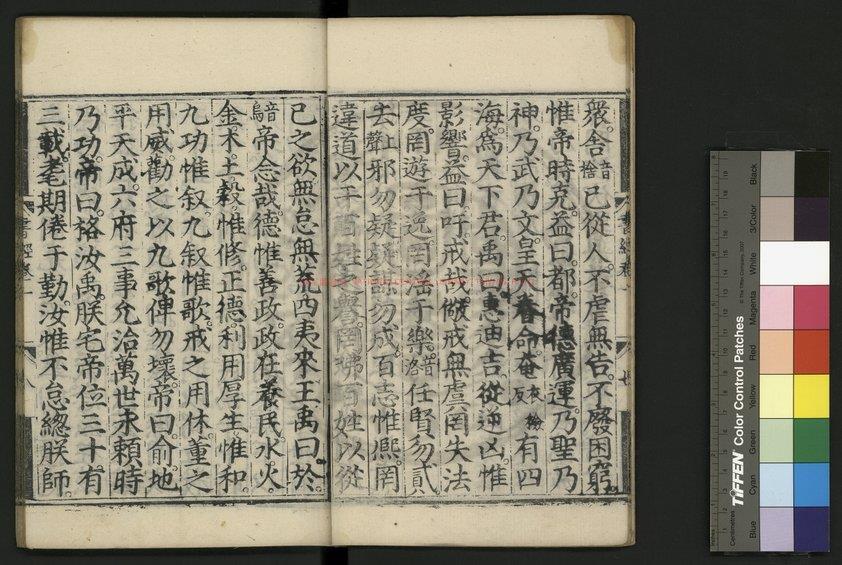 衆舍音捨己從人不虐無告不廢困窮
惟帝時克益曰都帝德廣運乃聖乃
神乃武乃文皇天眷命奄衣檢反有四
海爲天下君禹曰惠迪吉從逆凶惟
影響益曰吁戒哉儆戒無虞罔失法
度罔遊于逸罔淫于樂音洛任賢勿貳
去上聲邪勿疑疑謀勿成百志惟熙罔
違道以干百姓之譽罔咈百姓以從
己之欲無怠無荒四夷來王禹曰於
音烏帝念哉德惟善政政在養民水火
金木土穀惟修正德利用厚生惟和
九功惟叙九叙惟歌戒之用休董之
用威勸之以九歌俾勿壞帝曰俞地
平天成六府三事允治萬世永賴時
乃功帝曰格汝禹朕宅帝位三十有
三載耄期倦于勤汝惟不怠緫朕師
書經卷一
書經卷一
八
TIFFEN Color Control Patches
© The Tiffen Company, 2007
Centimetres
Inches
Blue
Cyan
Green
Yellow
Red
Magenta
White
3/Color
Black